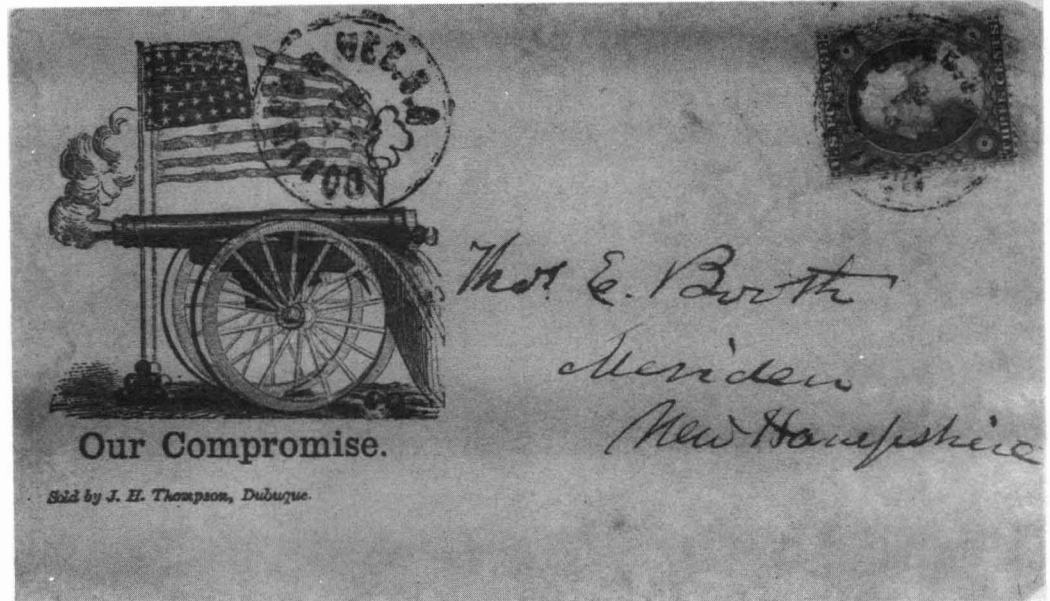 Our Compromise.
Sold by J. H. Thompson, Dubuque.
Thos. E. Booth
Meriden
New Hampshire